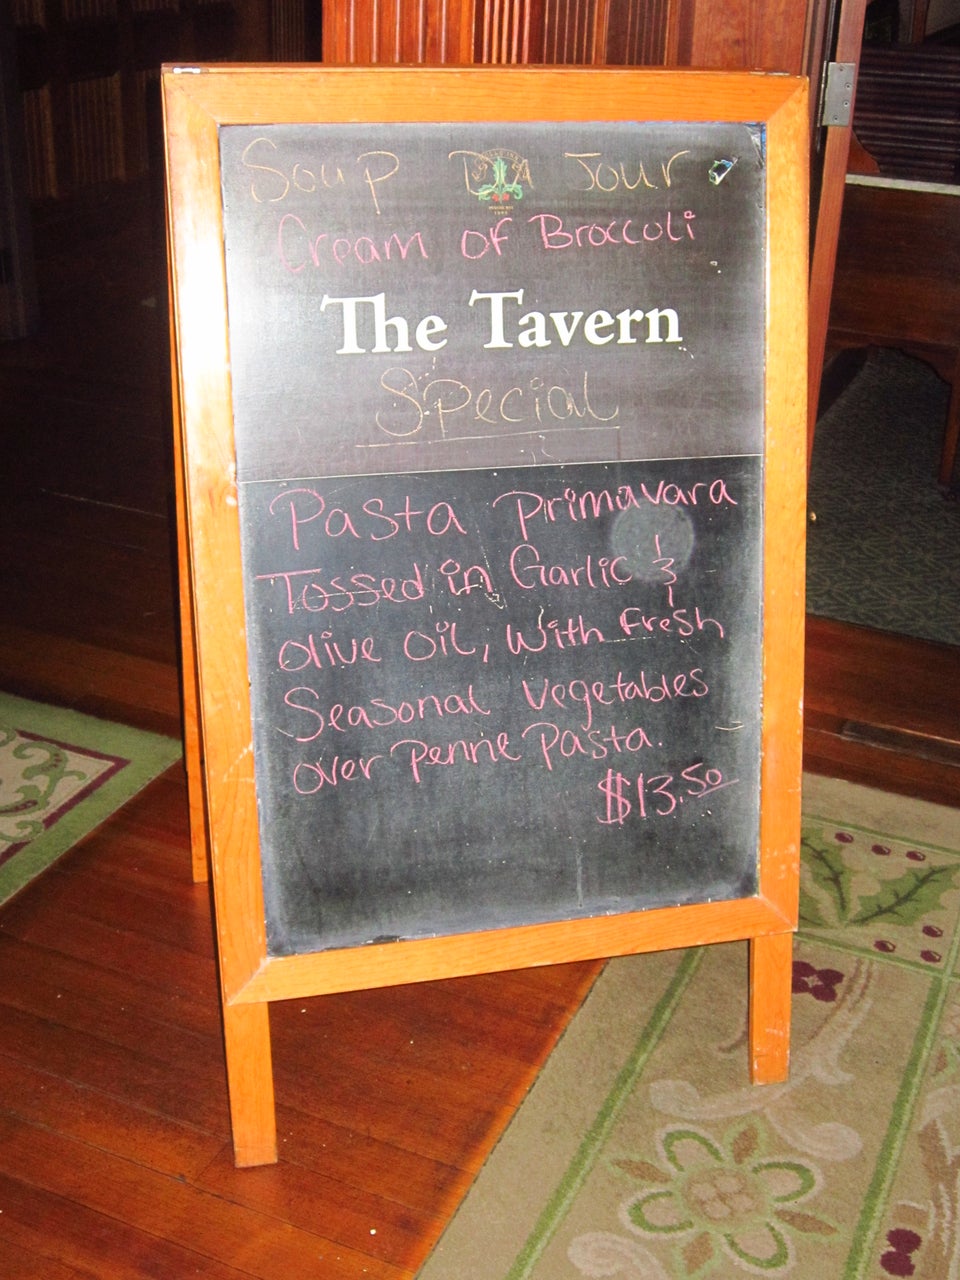 Soup Da Jour
Cream of Broccoli
The Tavern
Special
Pasta Primavara
Tossed in Garlic &
Olive Oil, With Fresh
Seasonal Vegetables
over Penne Pasta.
$13.50